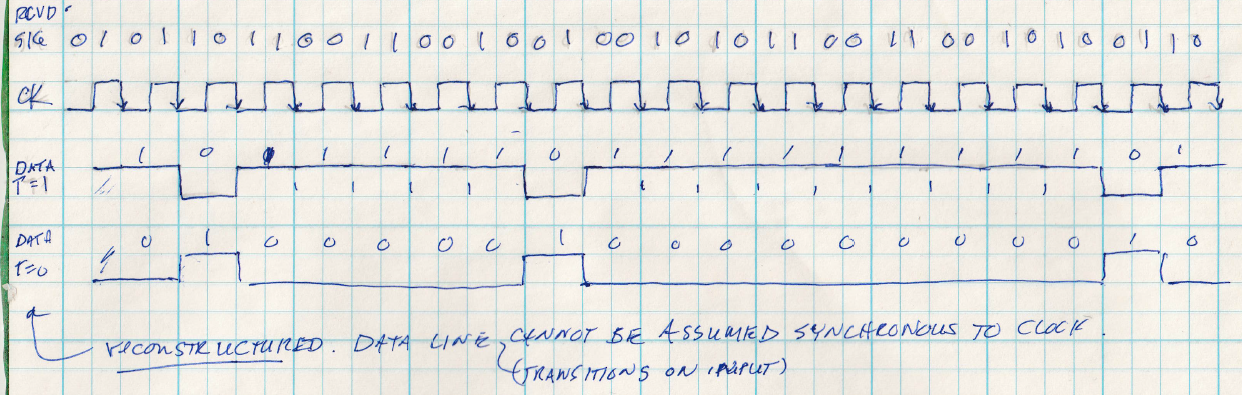 RCVD.
SIG 0 1 0 1 1 0 1 1 0 0 1 1 0 0 1 0 0 1 0 0 1 0 1 0 1 1 0 0 1 1 0 0 1 0 1 0 0 1 1 0
CK
DATA 1 0 1 1 1 1 0 1 1 1 1 1 1 1 1 1 0 1
T=1 1 1 1 1 1 1 1 1 1 1 1 1
DATA 0 1 0 0 0 0 0 1 0 0 0 0 0 0 0 0 0 1 0
T=0
reconstructured. DATA LINE CANNOT BE ASSUMED SYNCHRONOUS TO CLOCK.
(TRANSITIONS ON INPUT)